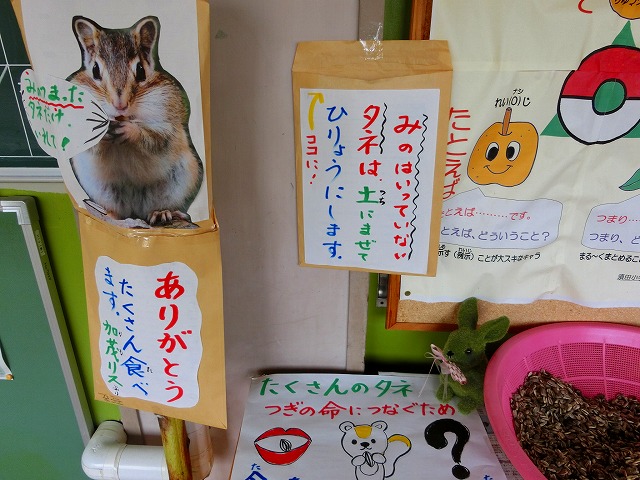 みのまった
タネだけ
いれて！
ありがとう
たくさん食べ
ます。加茂リス
ココに！
みのはいっていない
タネは、土にまぜて
ひりょうにします。
たとえば
れい(0)じ
たとえば………です。
たとえば、どういうこと？
ことが大スキなキャラ
つまり…
つまり、ど
まる〜くまとめるこ
たくさんのタネ
つぎの命につなぐため
?